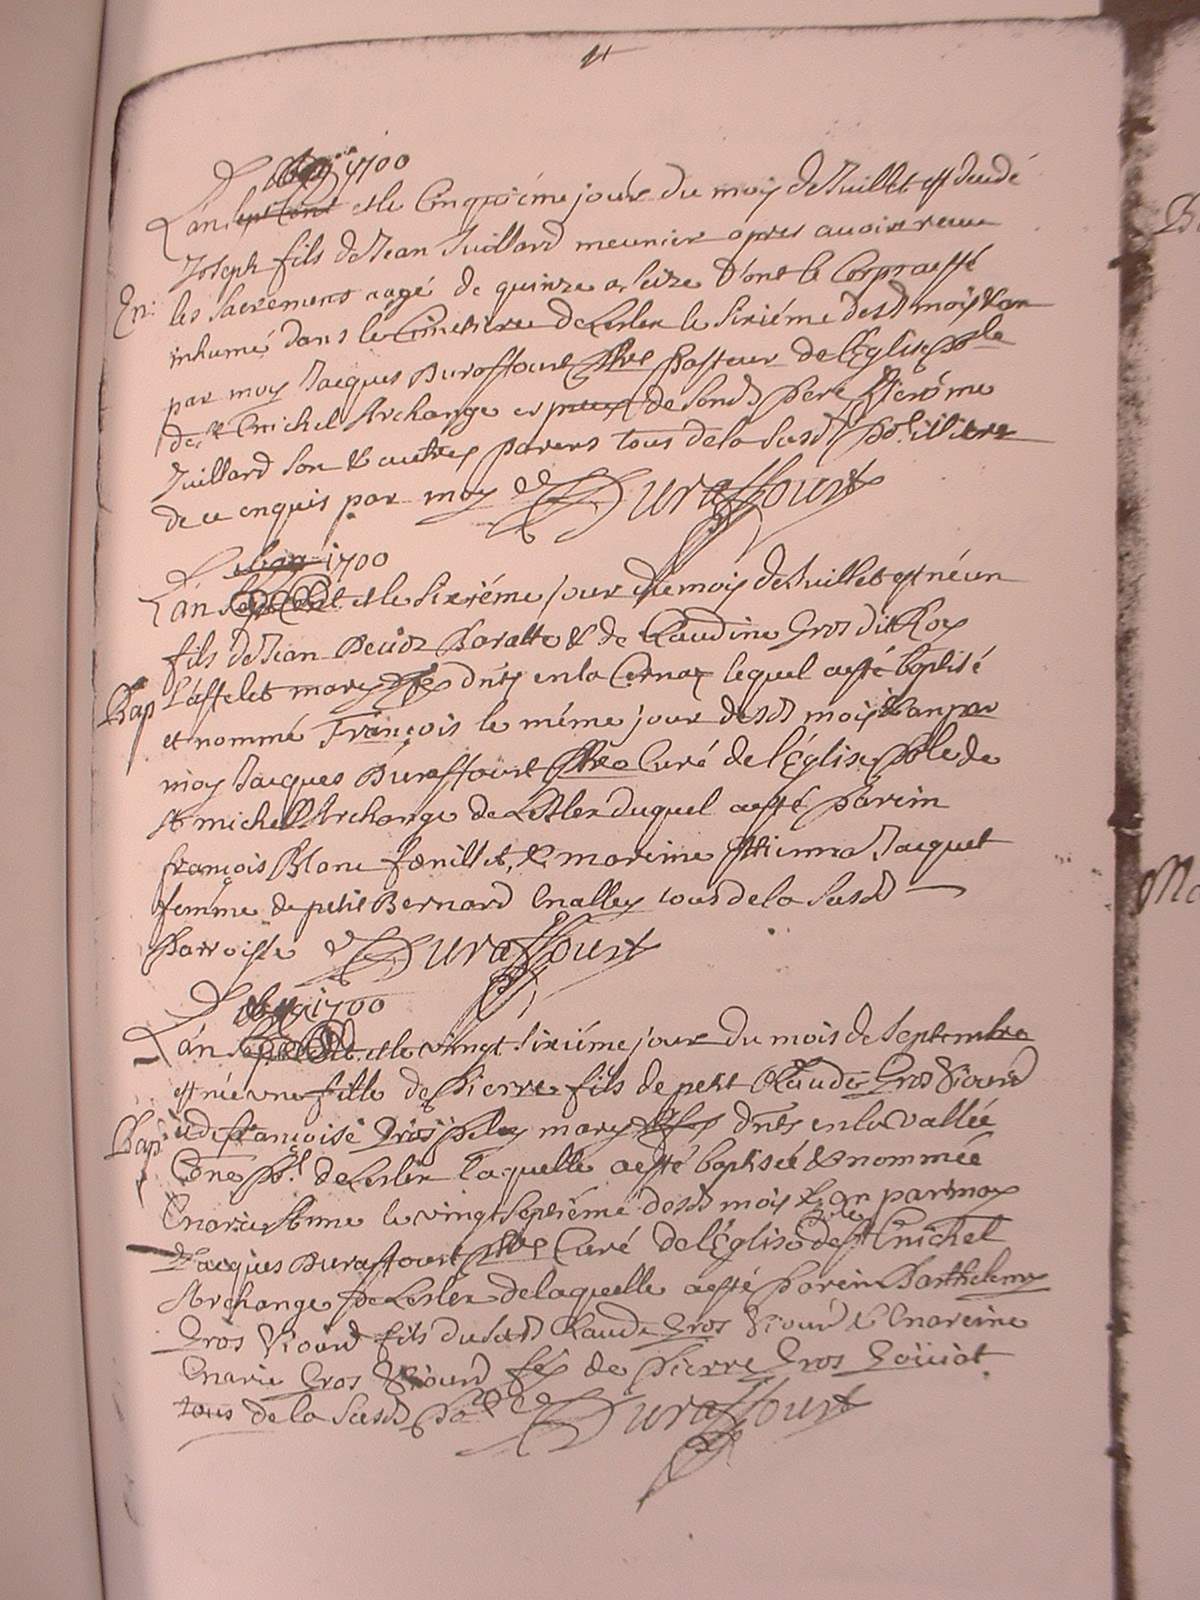 1700
L'an sept Cent et le Cinquiéme jour du mois de Juillet est decedé
Joseph fils de Jean Juillard meunier apres avoir receu
En: les Sacremens aagé de quinze a seize d'ont le Corps a esté
inhumé dans le Cimetiere de Lesler le sixiéme desd mois & an
par moy Jacques Duraffourt Pbre Pasteur de l'Eglise
de St Michel Archange es de sond Pere Hierôme
Juillard son & autres parens tous de la Susd
de ce enquis par moy Duraffourt
1700
L'an sept Cent et le sixiéme jour du mois de Juillet est né un
fils de Jean Baratte & de Claudine Gros dit Roy
Bap mary en la lequel a esté baptisé
et nommé François le méme jour desd mois & an par
moy Jacques Duraffourt Pbre Curé de l'Eglise de
St michel Archange de Lesler duquel a esté Parein
françois Blanc & mareine Jacquet
femme de petit Bernard tous de la Susd
Parroisse Duraffourt
1700
L'an sept Cent et le vingt sixiéme jour du mois de Septembre
est née une fille de Pierre fils de petit Claude Gros
Bap françoise Gros mary en la vallée
de Lesler laquelle a esté baptisée & nommée
le vingt septiéme desd mois & an par moy
Jacques Duraffourt Pbre Curé de l'Eglise de St Michel
Archange de Lesler de laquelle a esté Parein Barthelemy
Gros fils dusd Claude Gros & Mareine
Marie Gros de Pierre Gros
tous de la Susd Duraffourt